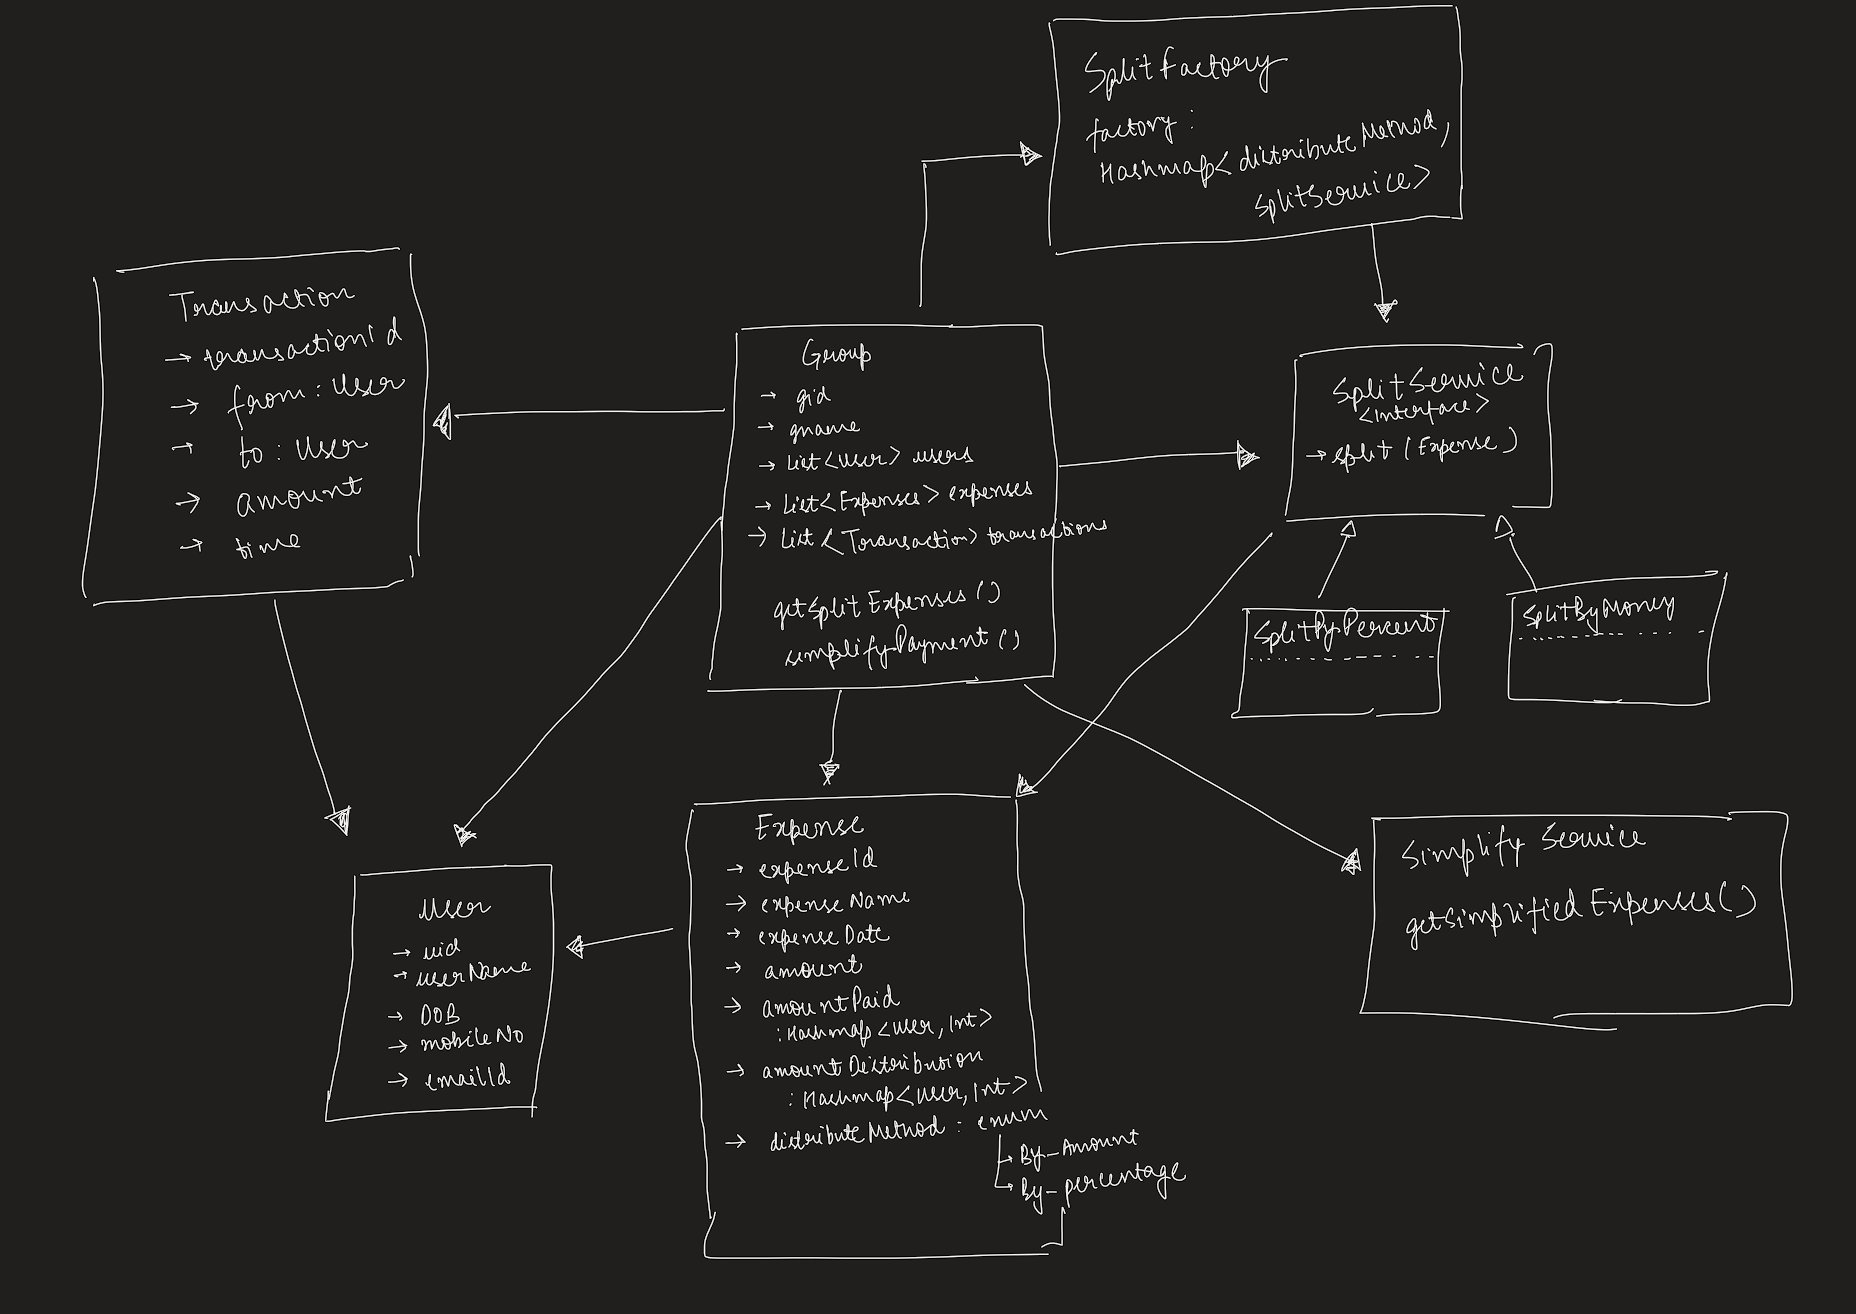 SplitFactory
factory :
Hashmap< distributeMethod,
splitService>
Transaction
→ transactionId
→ from : User
→ to : User
→ amount
→ time
Group
→ gid
→ gname
→ List<User> users
→ List<Expenses> expenses
→ List <Transaction> transactions
getSplitExpenses ()
simplifyPayment ()
SplitService
<interface>
→ split (Expense)
SplitByPercent
SplitByMoney
Expense
→ expenseId
→ expenseName
→ expenseDate
→ amount
→ amountPaid
: Hashmap <user, Int>
→ amountDistribution
: Hashmap <user, Int>
→ distributeMethod : enum
→ By-Amount
→ By-percentage
User
→ uid
→ userName
→ DOB
→ mobileNo
→ emailId
Simplify Service
getSimplifiedExpenses()